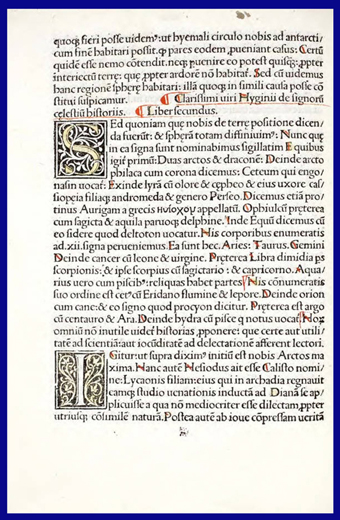 quoq; fieri posse uidemꝰ: ut hyemali circulo nobis ad antarcti/
cum finē habitari possit. ꝙ pares eodem ꝓueniant casus: Certū
quidē esse nemo cōtendit. necꝗ; puenire eo potest quisꝗ̄: ꝓpter
interiectū terrę: quę ꝓpter ardorē nō habitat̄. Sed cū uidemus
hanc regionē sphęrę habitari: illā quoq; in simili causa posse cō
stitui suspicamur. ¶ Clarissimi uiri Hyginii de signorū
cęlestiū historiis. ¶ Liber secundus.
SEd quoniam quę nobis de terrę positione dicen/
da fuerūt: & sphęrā totam diffiniuimꝰ: Nunc quę
in ea signa sunt nominabimus sigillatim E quibus
igit̄ primū: Duas arctos & draconē: Deinde arcto
philaca cum corona dicimus: Ceteum qui engo/
nasin uocat̄: Exinde lyrā cū olore & cępheo & eius uxore cas/
siopeia filiaq; andromeda & genero Perseo. Dicemus etiā pro
tinus Aurigam a grecis ηνιοχου appellatū. Ophiulcū pręterea
cum sagicta & aquila paruoq; delphine. Inde Equū dicemus cū
eo sidere quod deltoton uocatur. His corporibus enumeratis
ad.xii.signa perueniemus. Ea sunt hec. Aries: Taurus. Gemini
Deinde cancer cū leone & uirgine. Pręterea Libra dimidia ps
scorpionis: & ipse scorpius cū sagictario: & capricorno. Aqua/
rius uero cum piscibꝰ: reliquas habet partes His cōnumeratis
suo ordine est cetꝰ cū Eridano flumine & lepore. Deinde orion
cum cane: & eo signo quod procyon dicitur. Pręterea est argo
cū centauro & Ara. Deinde hydra cū pisce q notus uocat̄ Hoꝝ
omniū nō inutile uidet̄ historias ꝓponere: que certe aut utili/
tatē ad scientiā: aut iocūditatē ad delectationē afferent lectori.
IGitur: ut supra diximꝰ initiū est nobis Arctos ma
xima. Hanc autē Hesiodus ait esse Calisto nomi/
ne: Lycaonis filiam: eius qui in archadia regnauit
eamq; studio uenationis inductā ad Dianā se ap/
plicuisse a qua nō mediocriter esse dilectam, ꝓpter
utriusq; cōsimilē naturā. Postea autē ab ioue cōpressam ueritā